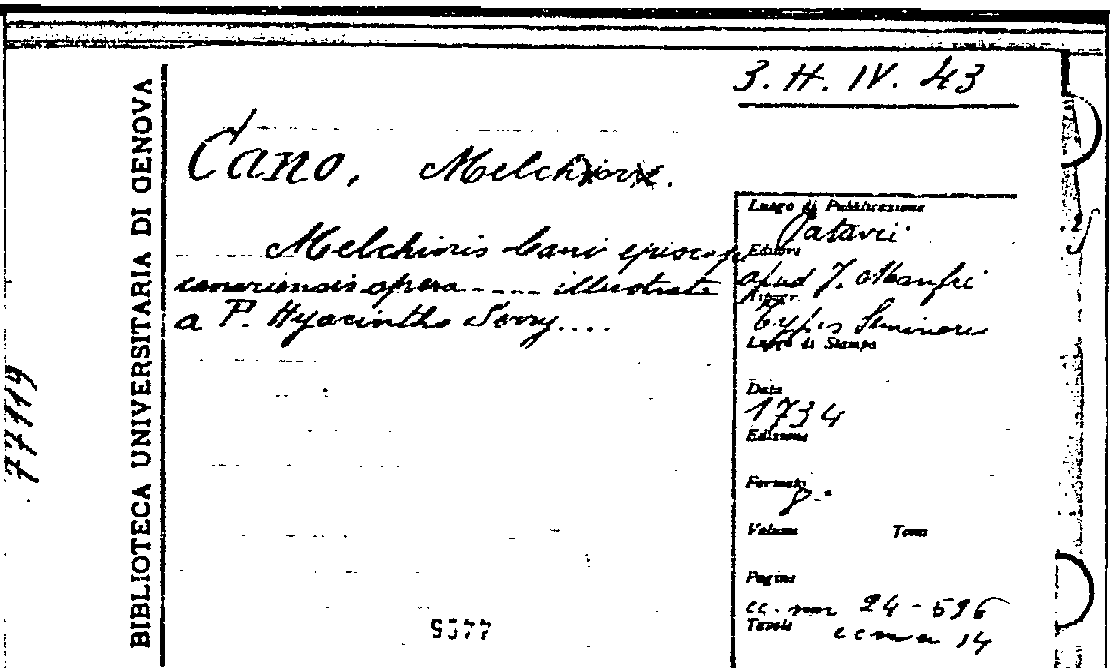 3. H. IV. 43
BIBLIOTECA UNIVERSITARIA DI GENOVA
77119
Cano, Melchior.
Melchioris Cani episcopi
canariensis opera ..... illustrata
a P. Hyacintho Serry....
Luogo di Pubblicazione
Patavii
Editore
apud J. Manfrè
typis Seminarii
Luogo di Stampa
Data
1734
Edizione
Formato
8°
Volume Tomi
Pagine
cc. nn 24-596
Tavole cc nn 14
9377